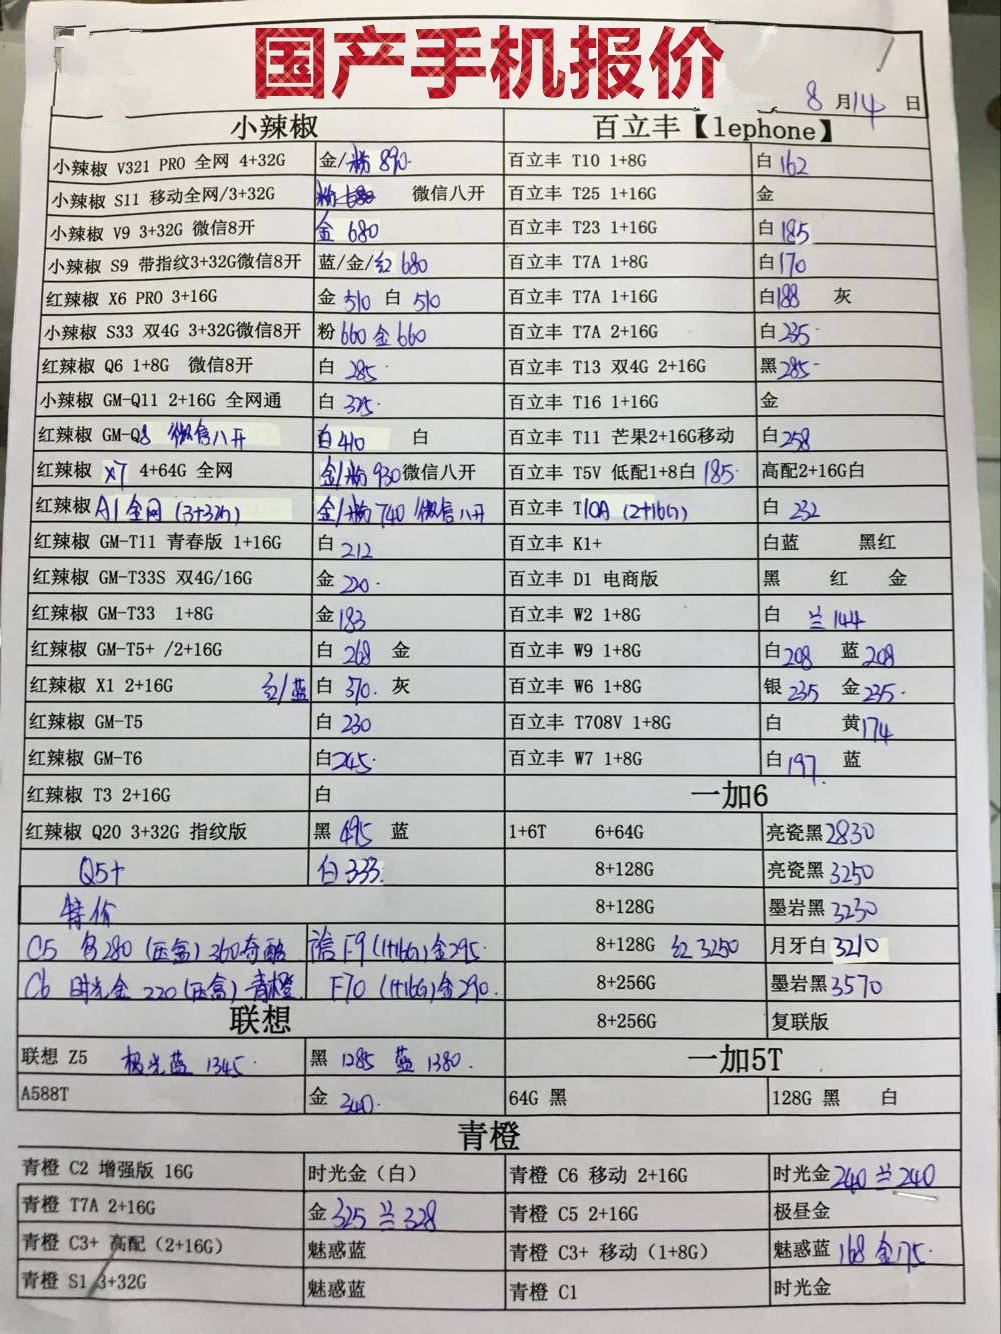 国产手机报价
8月14日
小辣椒 百立丰【lephone】
小辣椒 V321 PRO 全网 4+32G 金/粉 890 百立丰 T10 1+8G 白 162
小辣椒 S11 移动全网/3+32G 粉 680 微信八开 百立丰 T25 1+16G 金
小辣椒 V9 3+32G 微信8开 金 680 百立丰 T23 1+16G 白 185
小辣椒 S9 带指纹3+32G微信8开 蓝/金/红 680 百立丰 T7A 1+8G 白 170
红辣椒 X6 PRO 3+16G 金 510 白 510 百立丰 T7A 1+16G 白 188 灰
小辣椒 S33 双4G 3+32G微信8开 粉 660 金 660 百立丰 T7A 2+16G 白 235
红辣椒 Q6 1+8G 微信8开 白 285 百立丰 T13 双4G 2+16G 黑 285
小辣椒 GM-Q11 2+16G 全网通 白 375 百立丰 T16 1+16G 金
红辣椒 GM-Q8 微信八开 白 410 白 百立丰 T11 芒果2+16G移动 白 258
红辣椒 X7 4+64G 全网 金/粉 930 微信八开 百立丰 T5V 低配1+8白 185 高配2+16G白
红辣椒 A1 全网 (3+32G) 金/粉 740 微信八开 百立丰 T10A (2+16G) 白 232
红辣椒 GM-T11 青春版 1+16G 白 212 百立丰 K1+ 白蓝 黑红
红辣椒 GM-T33S 双4G/16G 金 220 百立丰 D1 电商版 黑 红 金
红辣椒 GM-T33 1+8G 金 183 百立丰 W2 1+8G 白 兰 144
红辣椒 GM-T5+ /2+16G 白 268 金 百立丰 W9 1+8G 白 208 蓝 208
红辣椒 X1 2+16G 红/蓝 白 370 灰 百立丰 W6 1+8G 银 235 金 235
红辣椒 GM-T5 白 230 百立丰 T708V 1+8G 白 黄 174
红辣椒 GM-T6 白 245 百立丰 W7 1+8G 白 197 蓝
红辣椒 T3 2+16G 白 一加6
红辣椒 Q20 3+32G 指纹版 黑 495 蓝 1+6T 6+64G 亮瓷黑 2830
Q5+ 白 333 8+128G 亮瓷黑 3250
特价 8+128G 墨岩黑 3230
C5 280 (压盒) 360奇酷 F9 (1+16G) 金295 8+128G 红 3250 月牙白 3210
C6 时光金 220 (压盒) 青橙 F70 (1+16G) 金290 8+256G 墨岩黑 3570
联想 8+256G 复联版
联想 Z5 极光蓝 1345 黑 1285 蓝 1380 一加5T
A588T 金 340 64G 黑 128G 黑 白
青橙
青橙 C2 增强版 16G 时光金（白） 青橙 C6 移动 2+16G 时光金 240 兰 240
青橙 T7A 2+16G 金 325 兰 328 青橙 C5 2+16G 极昼金
青橙 C3+ 高配（2+16G） 魅惑蓝 青橙 C3+ 移动（1+8G） 魅惑蓝 168 金175
青橙 S1 3+32G 魅惑蓝 青橙 C1 时光金